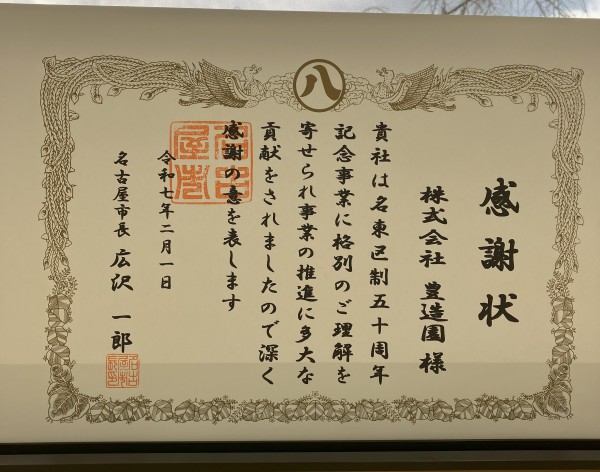 八
感謝状
株式会社 豊造園 様
貴社は名東区制五十周年
記念事業に格別のご理解を
寄せられ事業の推進に多大な
貢献をされましたので深く
感謝の意を表します
令和七年二月一日
名古屋市長 広沢 一郎